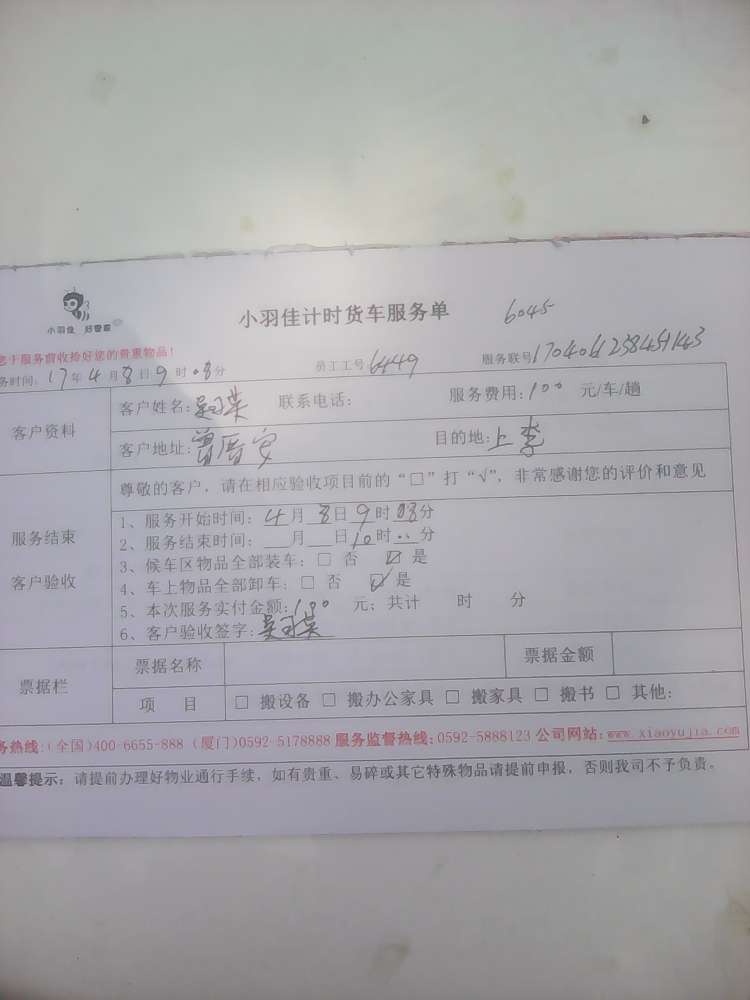 小羽佳 好管家
小羽佳计时货车服务单 6045
您于服务前收拾好您的贵重物品!
务时间: 17年4月8日9时08分 员工工号6449 服务联号
客户资料
客户姓名: 联系电话: 服务费用: 100 元/车/趟
客户地址: 目的地: 上李
服务结束
客户验收
尊敬的客户, 请在相应验收项目前的“□”打“√”, 非常感谢您的评价和意见
1、服务开始时间: 4月8日9时08分
2、服务结束时间: 月 日10时00分
3、候车区物品全部装车: □ 否 ☑ 是
4、车上物品全部卸车: □ 否 ☑ 是
5、本次服务实付金额: 100 元; 共计 时 分
6、客户验收签字:
票据栏
票据名称 票据金额
项 目 □ 搬设备 □ 搬办公家具 □ 搬家具 □ 搬书 □ 其他:
务热线: (全国)400-6655-888 (厦门)0592-5178888 服务监督热线: 0592-5888123 公司网站: www.xiaoyujia.com
温馨提示: 请提前办理好物业通行手续, 如有贵重、易碎或其它特殊物品请提前申报, 否则我司不予负责。